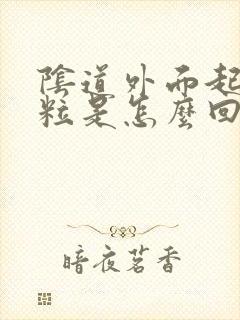 陰道外面起
粒是怎麼回
暗夜茗香